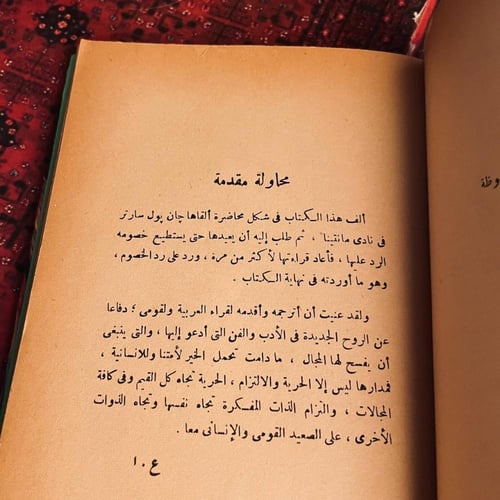 محاولة مقدمة
ألف هذا الكتاب فى شكل محاضرة ألقاها چان پول سارتر
فى نادى مانتينان، ثم طلب إليه أن يعيدها حتى يستطيع خصومه
الرد عليها، فأعاد قراءتها لأكثر من مرة، ورد على رد الخصوم،
وهو ما أوردته فى نهاية الكتاب.
ولقد عنيت أن أترجمه وأقدمه لقراء العربية ولقومى؛ دفاعا
عن الروح الجديدة فى الأدب والفن التى أدعو إليها، والتى ينبغى
أن يفسح لها المجال، ما دامت تحمل الخير لأمتنا وللانسانية،
فمدارها ليس إلا الحرية والالتزام، الحرية تجاه كل القيم وفى كافة
المجالات، والتزام الذات المفكرة تجاه نفسها وتجاه الذوات
الأخرى، على الصعيد القومى والإنسانى معا.
ع. ا
وظة